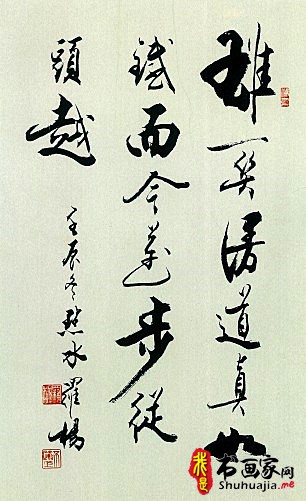 雄關漫道真如
鐵而今邁步從
頭越
壬辰冬
水耀楊
我是书画家网
Shuhuajia